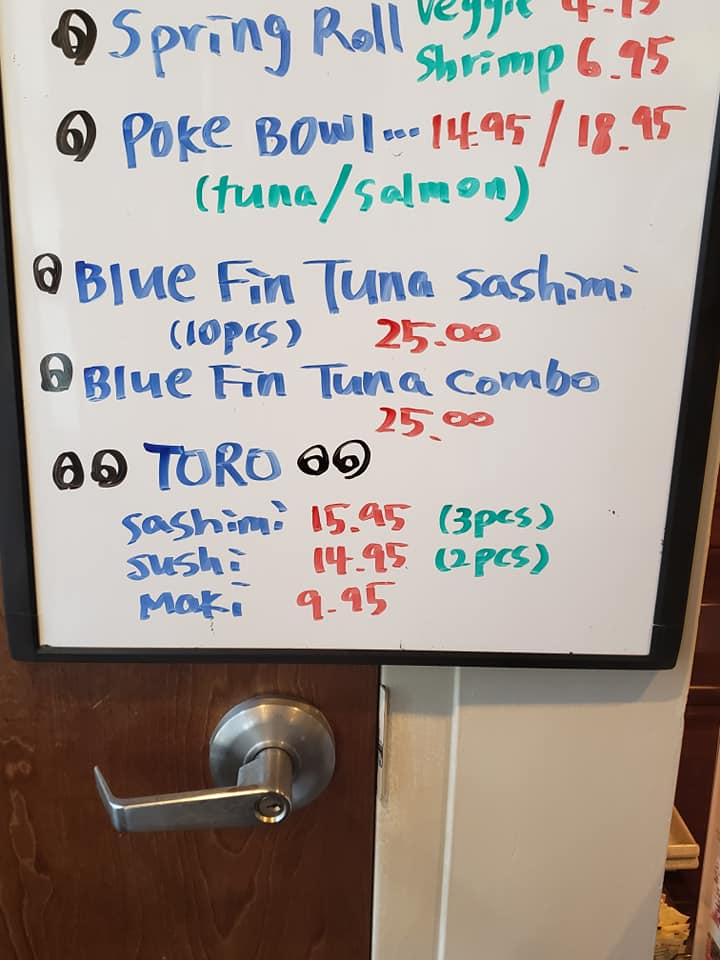 Spring Roll Veggie
Shrimp 6.95
POKE BOWl... 14.95 / 18.95
(tuna/salmon)
Blue Fin Tuna sashimi
(10pcs) 25.00
Blue Fin Tuna combo
25.00
TORO
sashimi 15.95 (3pcs)
sushi 14.95 (2pcs)
Maki 9.95